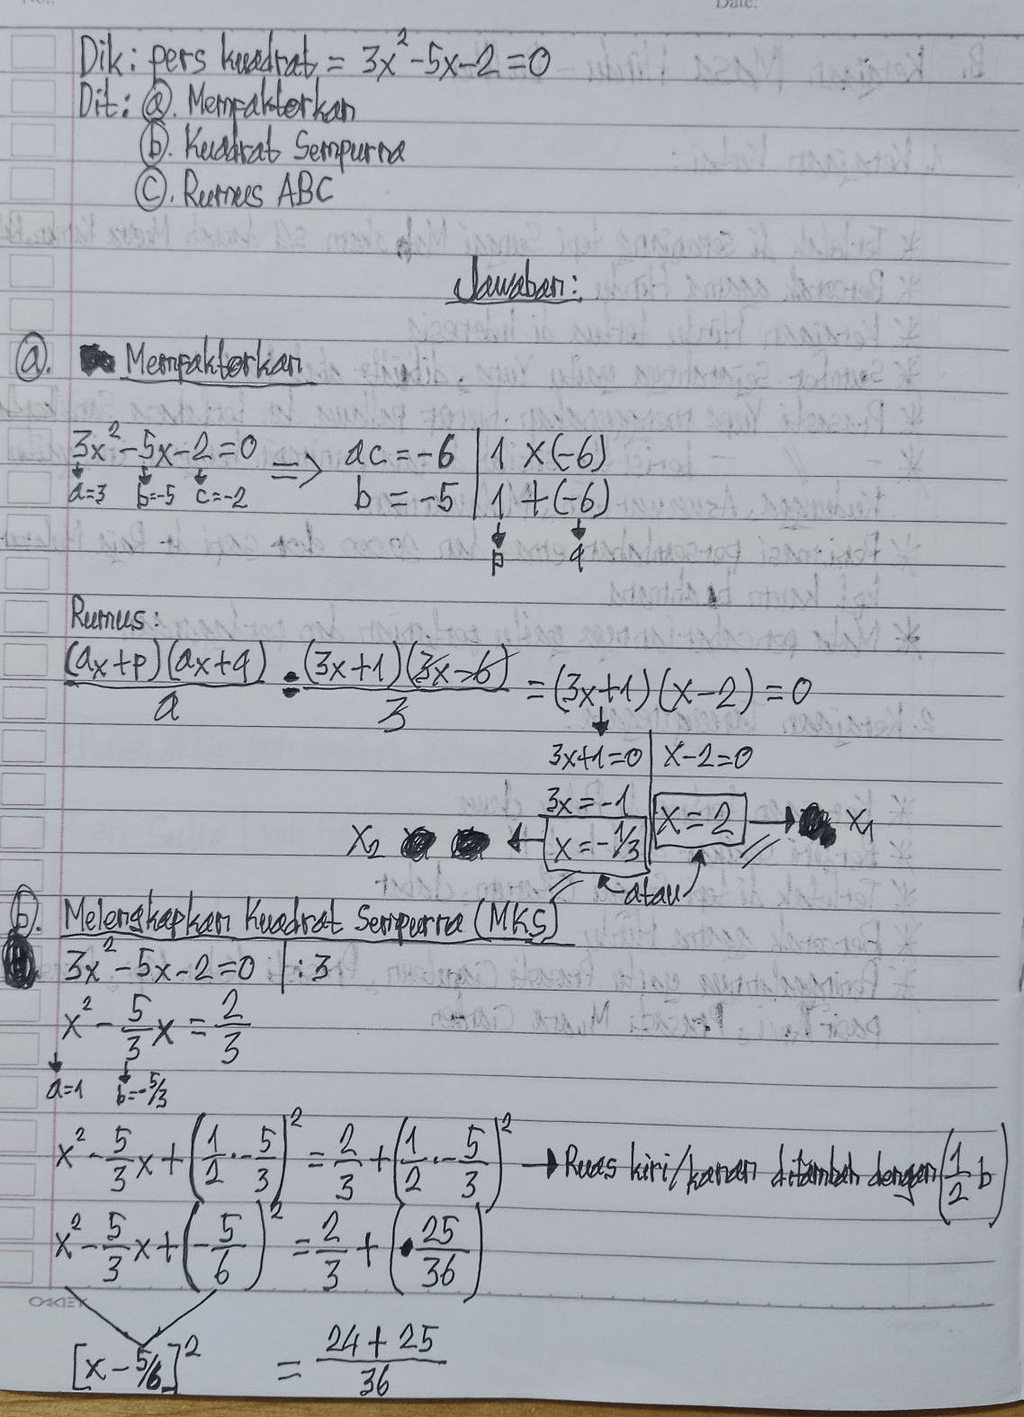 Date:
Dik: pers kuadrat = 3x² - 5x - 2 = 0
Dit: ⓐ. Memfaktorkan
ⓑ. Kuadrat Sempurna
ⓒ. Rumus ABC
Jawaban:
ⓐ. Memfaktorkan
3x² - 5x - 2 = 0 => ac = -6 | 1 x (-6)
a=3 b=-5 c=-2 b = -5 | 1 + (-6)
p q
Rumus:
(ax+p)(ax+q)/a = (3x+1)(3x-6)/3 = (3x+1)(x-2) = 0
3x+1=0 | x-2=0
3x = -1
x₂ ← x = -1/3 x = 2 → x₁
atau
ⓑ. Melengkapkan Kuadrat Sempurna (MKS)
3x² - 5x - 2 = 0 | : 3
x² - 5/3 x = 2/3
a=1 b=-5/3
x² - 5/3 x + (1/2 · -5/3)² = 2/3 + (1/2 · -5/3)² → Ruas kiri/kanan ditambah dengan (1/2 b)
x² - 5/3 x + (-5/6)² = 2/3 + (25/36)
OKEY
[x - 5/6]² = 24 + 25/36